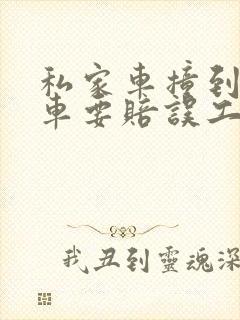 私家車撞到
車要賠誤工
我丑到靈魂深